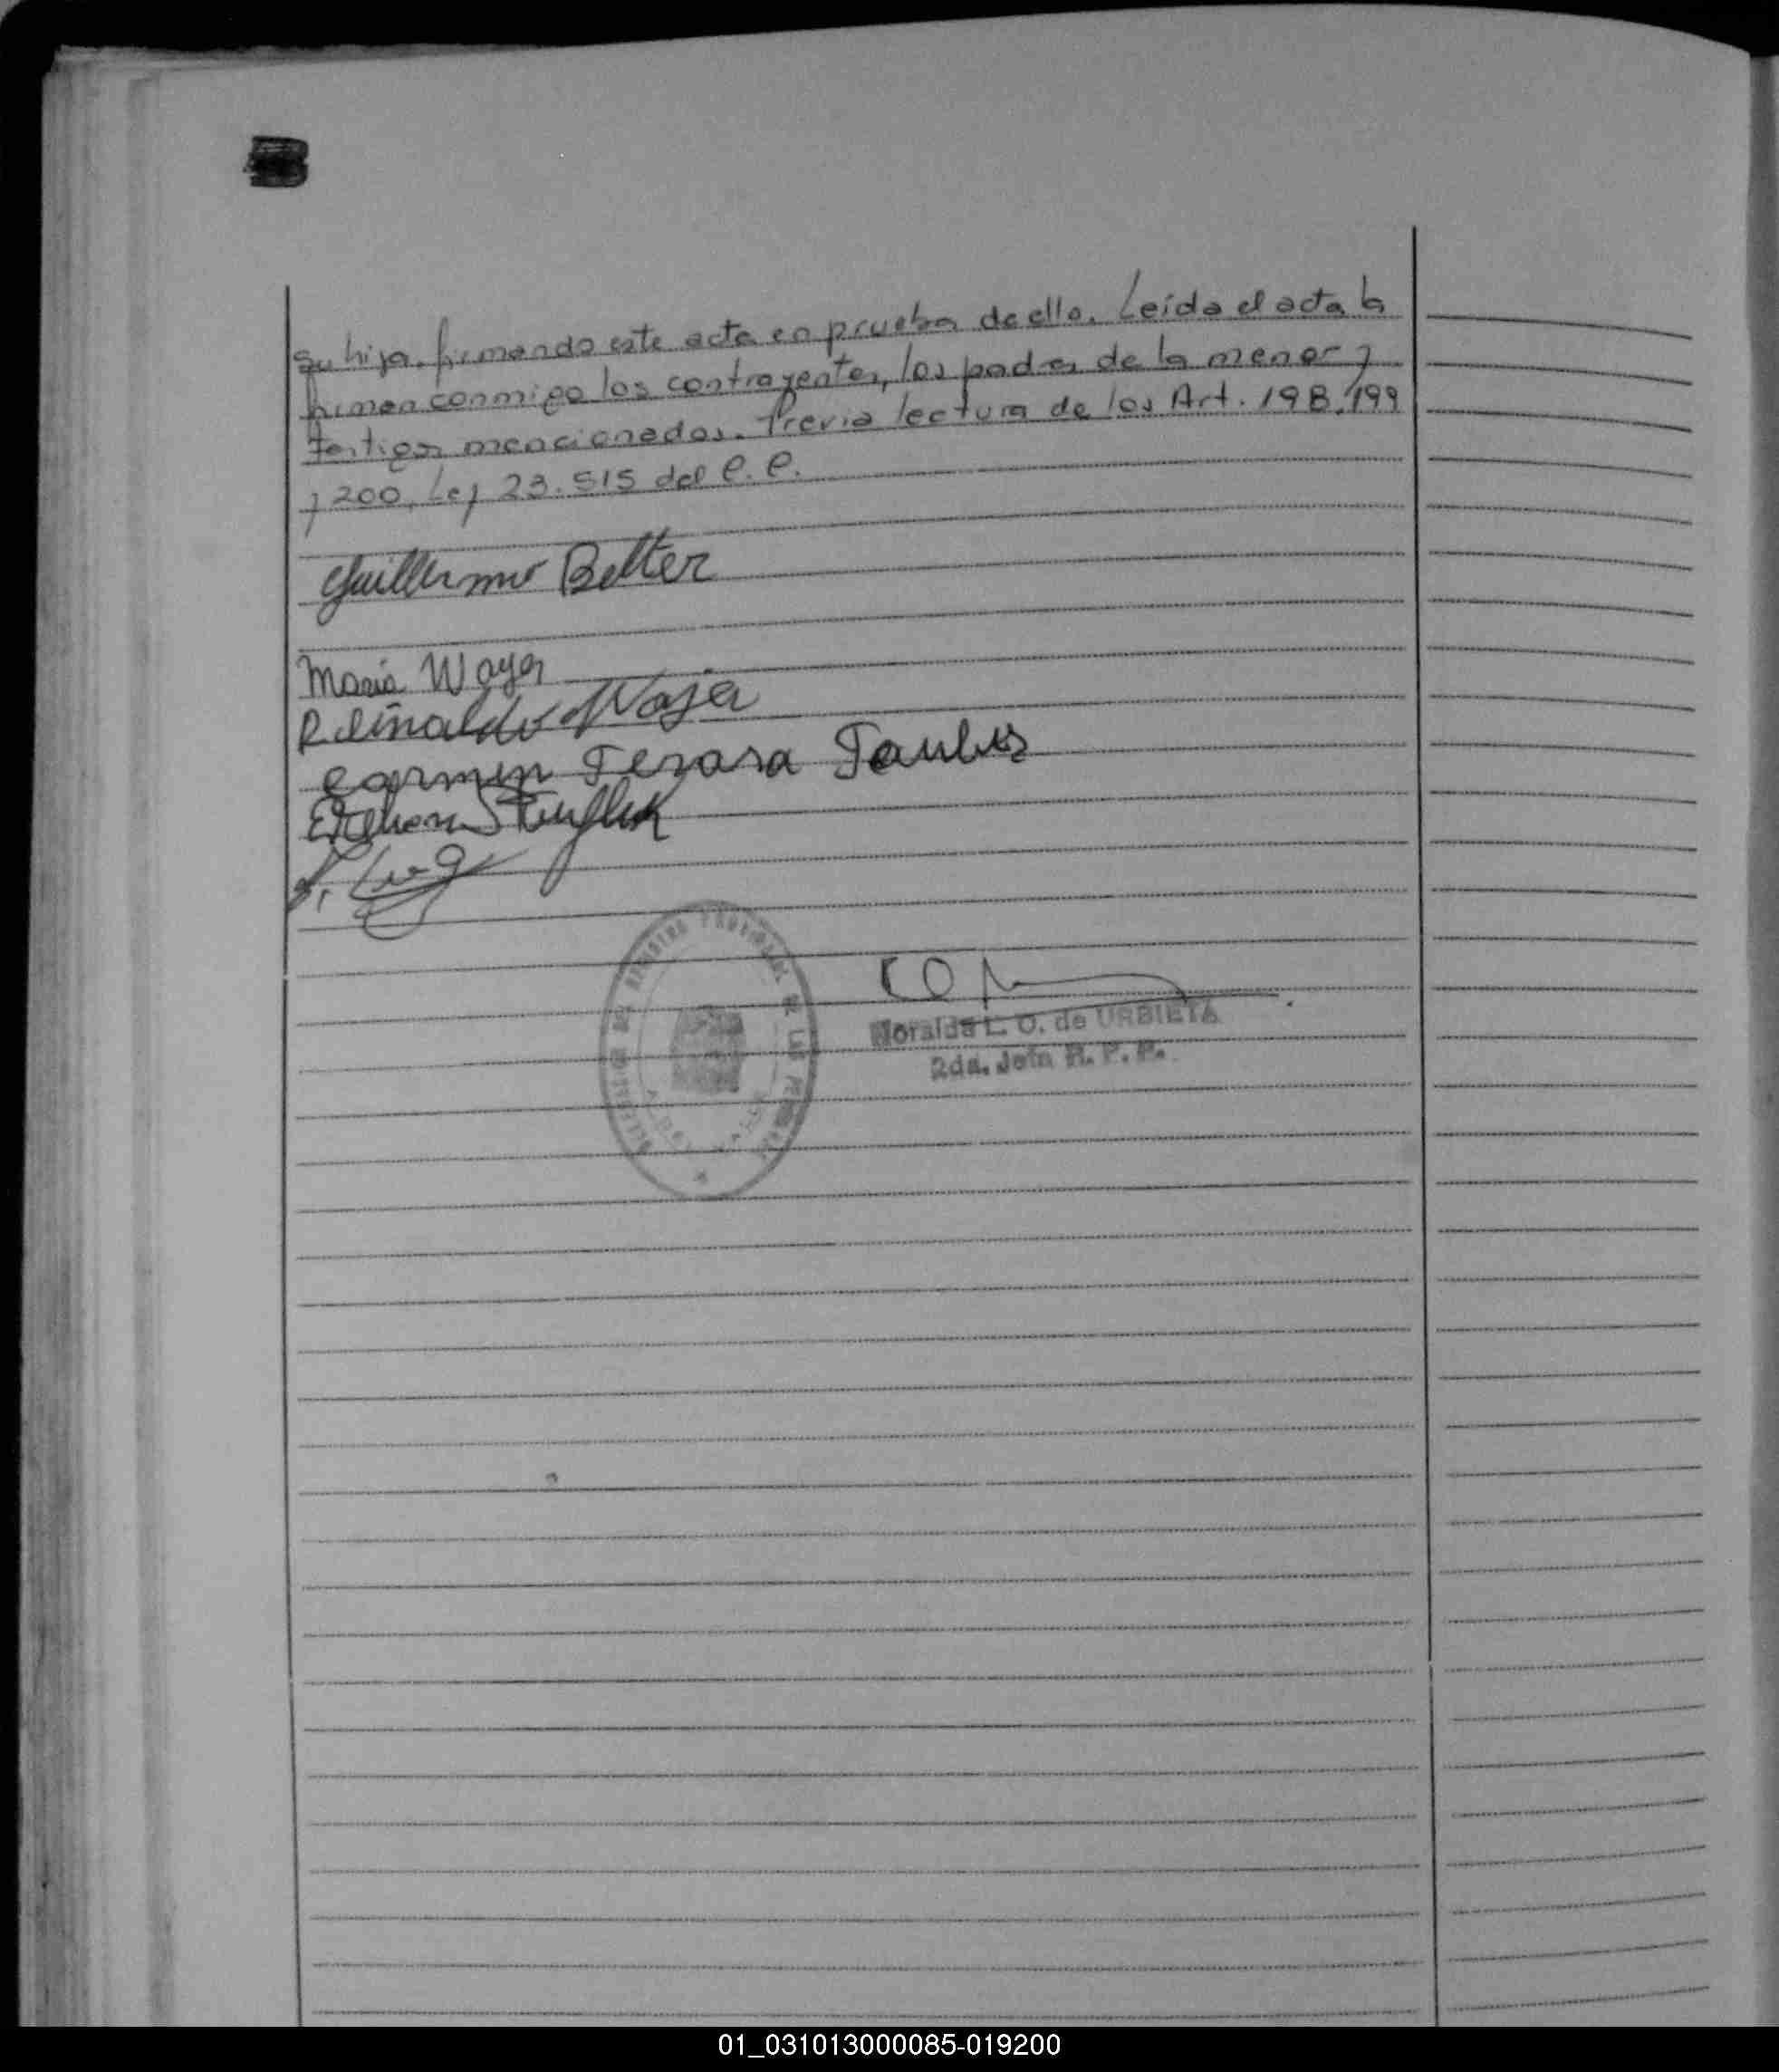 su hija. firmando este acta en prueba de ello. Leída el acta la
firman conmigo los contrayentes, los padres de la menor y
testigos mencionados. Previa lectura de los Art. 198, 199
y 200, Ley 23.515 del C. C.
Guillermo Belter
Maria Wayer
Reinaldo Wajer
Carmen Teresa
Noralda L. O. de URBIETA
2da. Jefa R. P. P.
01_031013000085-019200